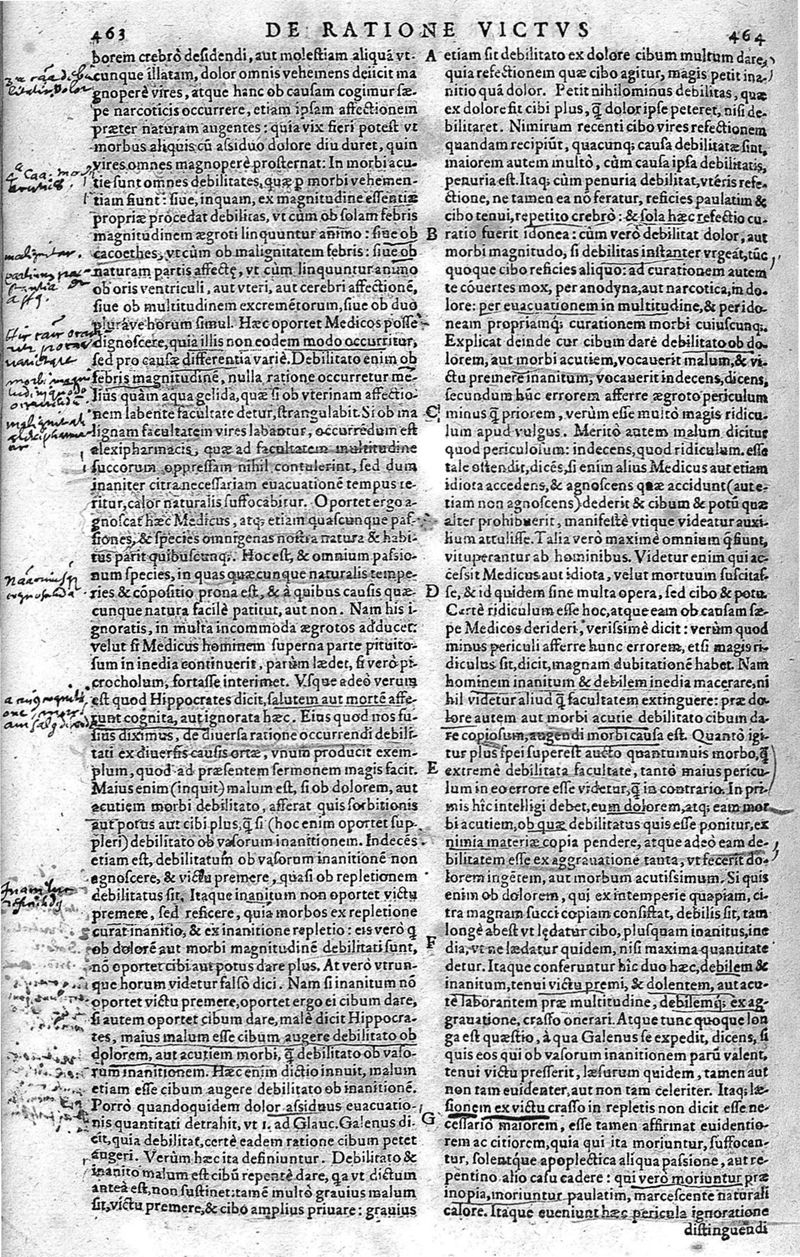 463
DE RATIONE VICTVS
464
borem crebrò desidendi, aut molestiam aliquā vt-
cunque illatam, dolor omnis vehemens deiicit ma
gnoperè vires, atque hanc ob causam cogimur sæ-
pe narcoticis occurrere, etiam ipsam affectionem
præter naturam augentes: quia vix fieri potest vt
morbus aliquis cū assiduo dolore diu duret, quin
vires omnes magnoperè prosternat: In morbi acu-
tie sunt omnes debilitates, quæ p morbi vehemen-
tiam fiunt: siue, inquam, ex magnitudine essentiæ
propriæ procedat debilitas, vt cùm ob solam febris
magnitudinem ægroti linquuntur animo: siue ob
cacoethes, vt cùm ob malignitatem febris: siue ob
naturam partis affectę, vt cùm linquuntur animo
ob oris ventriculi, aut vteri, aut cerebri affectionē,
siue ob multitudinem excremētorum, siue ob duo
plurave horum simul. Hæc oportet Medicos posse
dignoscere, quia illis non eodem modo occurritur,
sed pro causæ differentia variè. Debilitato enim ob
febris magnitudinē, nulla ratione occurretur me-
lius quàm aqua gelida, quæ si ob vterinam affectio-
nem labente facultate detur, strangulabit. Si ob ma
lignam facultatem vires labantur, occurrēdum est
alexipharmacis, quæ ad facultatem multitudine
succorum oppressam nihil contulerint, sed dum
inaniter citra necessariam euacuationem tempus te-
ritur, calor naturalis suffocabitur. Oportet ergo a-
gnoscat hæc Medicus, atq; etiam quascunque pas-
siones, & species omnigenas nostra natura & habi-
tus parit quibuscunq;. Hoc est, & omnium passio-
num species, in quas quæcunque naturalis tempe-
ries & cōpositio prona est, & à quibus causis quæ-
cunque natura facilè patitut, aut non. Nam his i-
gnoratis, in multa incommoda ægrotos adducet:
velut si Medicus hominem superna parte pituito-
sum in inedia continuerit, parùm lædet, si verò pi-
crocholum, fortasse interimet. Vsque adeò verum
est quod Hippocrates dicit, salutem aut mortē affe-
runt cognita, aut ignorata hæc. Eius quod nos fu-
sius diximus, de diuersa ratione occurrendi debili-
tati ex diuersis causis ortæ, vnum producit exem-
plum, quod ad præsentem sermonem magis facit.
Maius enim (inquit) malum est, si ob dolorem, aut
acutiem morbi debilitato, afferat quis sorbitionis
aut potus aut cibi plus, q̄ si (hoc enim oportet sup-
pleri) debilitato ob vasorum inanitionem. Indecēs
etiam est, debilitatum ob vasorum inanitionē non
agnoscere, & victu premere, quasi ob repletionem
debilitatus sit. Itaque inanitum non oportet victu
premere, sed reficere, quia morbos ex repletione
curat inanitio, & ex inanitione repletio: eis verò q
ob dolorē aut morbi magnitudinē debilitati sunt,
nō oportet cibi aut potus dare plus. At verò vtrun-
que horum videtur falsò dici. Nam si inanitum nō
oportet victu premere, oportet ergo ei cibum dare,
si autem oportet cibum dare, malè dicit Hippocra-
tes, maius malum esse cibum augere debilitato ob
dolorem, aut acutiem morbi, q̄ debilitato ob vaso-
rum inanitionem. Hæc enim dictio innuit, malum
etiam esse cibum augere debilitato ob inanitionē.
Porrò quandoquidem dolor assiduus euacuatio-
nis quantitati detrahit, vt 1. ad Glauc. Galenus di-
cit, quia debilitat, certè eadem ratione cibum petet
augeri. Verùm hæc ita definiuntur. Debilitato &
inanito malum est cibū repentè dare, qa vt dictum
antea est, non sustinet: tamē multò grauius malum
sit, victu premere, & cibo amplius priuare: grauius
A
B
C
D
E
F
G
etiam sit debilitato ex dolore cibum multum dare,
quia refectionem quæ cibo agitur, magis petit ina-
nitio quā dolor. Petit nihilominus debilitas, quæ
ex dolore fit cibi plus, q̄ dolor ipse peteret, nisi de-
bilitaret. Nimirum recenti cibo vires refectionem
quandam recipiūt, quacunq; causa debilitatæ sint,
maiorem autem multò, cùm causa ipsa debilitatis,
penuria est. Itaq; cùm penuria debilitat, vtēris refe-
ctione, ne tamen ea nō feratur, reficies paulatim &
cibo tenui, repetito crebrò: & sola hæc refectio cu-
ratio fuerit idonea: cùm verò debilitat dolor, aut
morbi magnitudo, si debilitas instanter vrgeat, tūc
quoque cibo reficies aliquo: ad curationem autem
te cōuertes mox, per anodyna, aut narcotica, in do-
lore: per euacuationem in multitudine, & per ido-
neam propriamq; curationem morbi cuiuscunq;.
Explicat deinde cur cibum dare debilitato ob do-
lorem, aut morbi acutiem, vocauerit malum, & vi-
ctu premere inanitum, vocauerit indecens, dicens,
secundum hūc errorem afferre ægroto periculum
minus q̄ priorem, verùm esse multò magis ridicu-
lum apud vulgus. Meritò autem malum dicitur
quod periculosum: indecens, quod ridiculum. esse
tale ostendit, dicēs, si enim alius Medicus aut etiam
idiota accedens, & agnoscens quæ accidunt (aut e-
tiam non agnoscens) dederit & cibum & potū quæ
alter prohibuerit, manifestè vtique videatur auxi-
lium attulisse. Talia verò maximè omnium q̄ fiunt,
vituperantur ab hominibus. Videtur enim qui ac-
cesit Medicus aut idiota, velut mortuum suscitas-
se, & id quidem sine multa opera, sed cibo & potu.
Certè ridiculum esse hoc, atque eam ob causam sæ-
pe Medicos derideri, verissimè dicit: verùm quod
minus periculi afferre hunc errorem, etsi magis ri-
diculus sit, dicit, magnam dubitationē habet. Nam
hominem inanitum & debilem inedia macerare, ni
hil videtur aliud q̄ facultatem extinguere: præ do-
lore autem aut morbi acutie debilitato cibum da-
re copiosum, augendi morbi causa est. Quantò igi-
tur plus spei superest aucto quantumuis morbo, q̄
extremè debilitata facultate, tantò maius pericu-
lum in eo errore esse videtur, q̄ in contrario. In pri-
mis hîc intelligi debet, eum dolorem, atq; eam mor
bi acutiem, ob quæ debilitatus quis esse ponitur, ex
nimia materiæ copia pendere, atque adeò eam de-
bilitatem esse ex aggrauatione tanta, vt fecerit do-
lorem ingētem, aut morbum acutissimum. Si quis
enim ob dolorem, qui ex intemperie quapiam, ci-
tra magnam succi copiam consistat, debilis sit, tam
longè abest vt lędatur cibo, plusquam inanitus, ine
dia, vt ne lædatur quidem, nisi maxima quantitate
detur. Itaque conferuntur hîc duo hæc, debilem &
inanitum, tenui victu premi, & dolentem, aut acu-
tè laborantem præ multitudine, debilemq; ex ag-
grauatione, crasso onerari. Atque tunc quoque lon
ga est quæstio, à qua Galenus se expedit, dicens, si
quis eos qui ob vasorum inanitionem parū valent,
tenui victu presserit, læsurum quidem, tamen aut
non tam euidenter, aut non tam celeriter. Itaq; læ-
sionem ex victu crasso in repletis non dicit esse ne-
cessariò maiorem, esse tamen affirmat euidentio-
rem ac citiorem, quia qui ita moriuntur, suffocan-
tur, solentque apoplectica aliqua passione, aut re-
pentino alio casu cadere: qui verò moriuntur præ
inopia, moriuntur paulatim, marcescente naturali
calore. Itaque eueniunt hæc pericula ignoratione
distinguendi